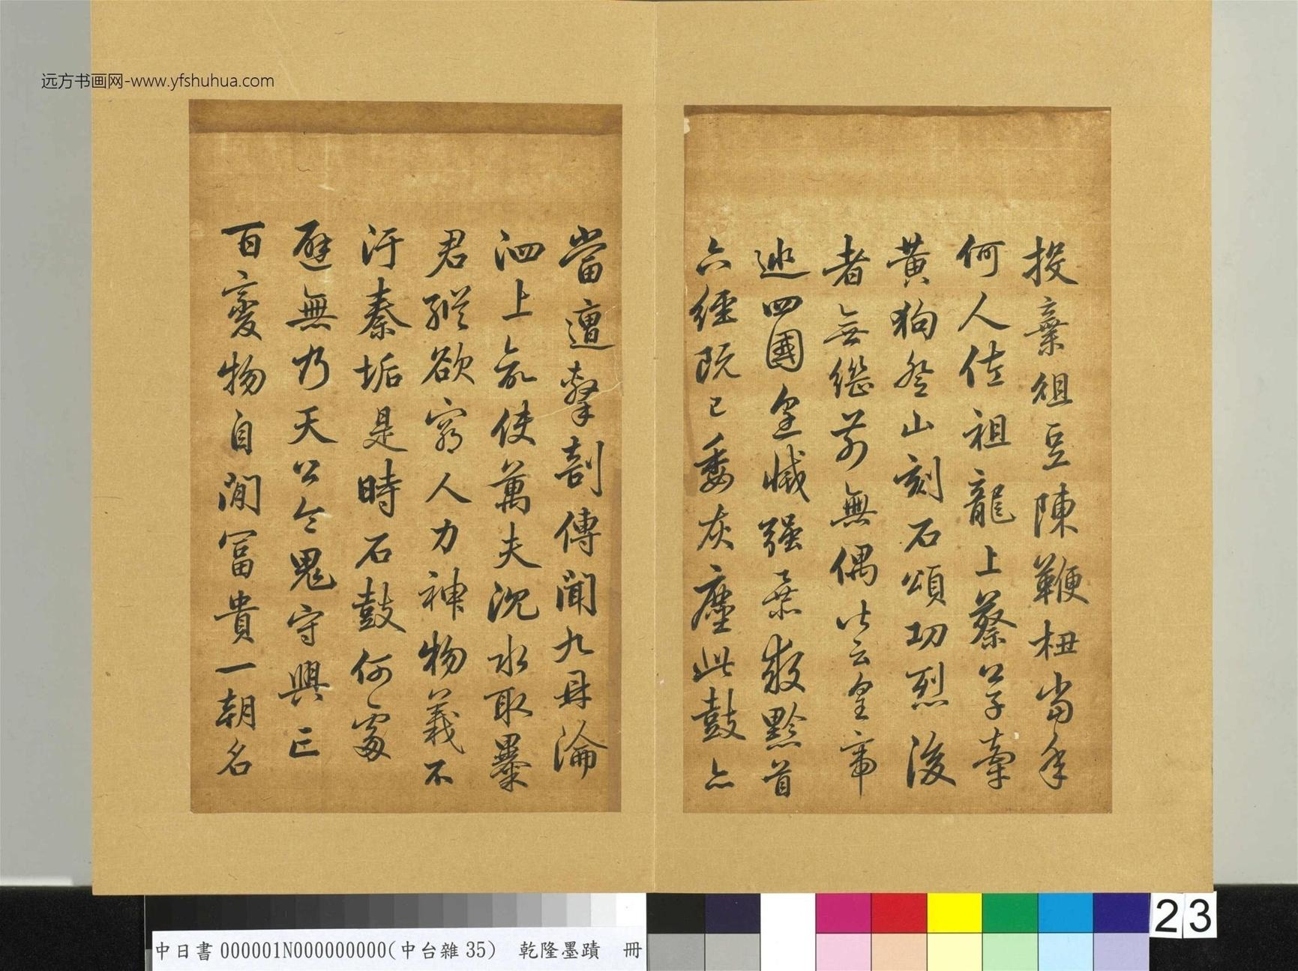 远方书画网-www.yfshuhua.com
投棄俎豆陳鞭杻當年
何人佐祖龍上蔡公子牽
黃狗登山刻石頌功烈後
者無繼前無偶皆云皇帝
巡四國烹滅強暴救黔首
六經既已委灰塵此鼓亦
當遭擊剖傳聞九鼎淪
泗上欲使萬夫沉水取暴
君縱欲窮人力神物義不
汙秦垢是時石鼓何處
避無乃天公令鬼守興亡
百變物自閒富貴一朝名
中日書 000001N000000000(中台雜 35) 乾隆墨蹟 冊
23